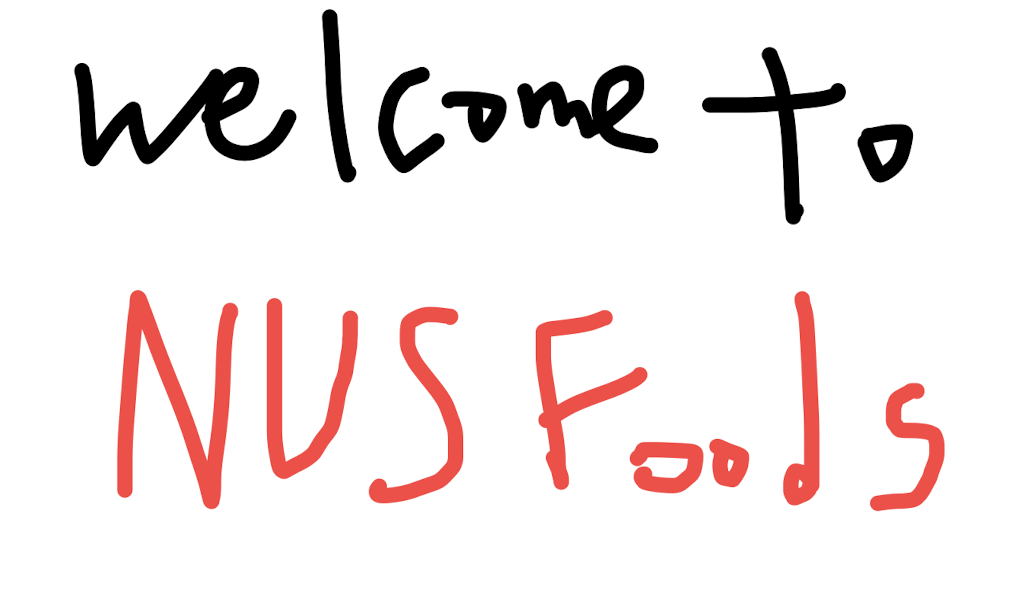 welcome to
NUS Foods